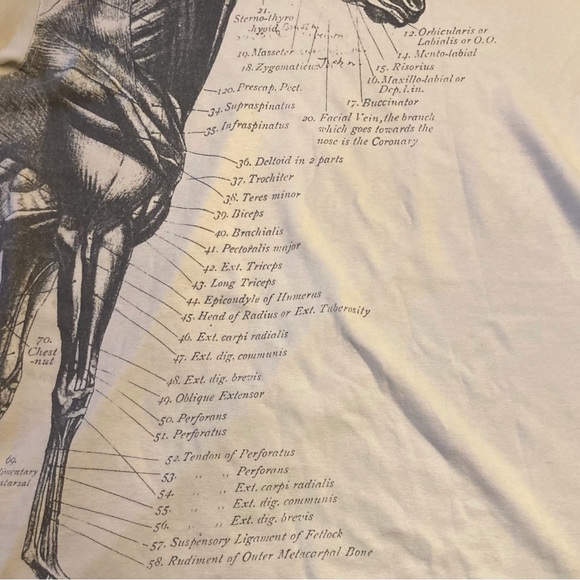 21.
Sterno-thyro
hyoid
12. Orbicularis or
Labialis or O.O.
14. Mento-labial
15. Risorius
16. Maxillo-labial or
Dep. l. in.
17. Buccinator
19. Masseter
18. Zygomaticus
20. Facial Vein, the branch
which goes towards the
nose is the Coronary
120. Prescap. Pect.
34. Supraspinatus
35. Infraspinatus
36. Deltoid in 2 parts
37. Trochiter
38. Teres minor
39. Biceps
40. Brachialis
41. Pectoralis major
42. Ext. Triceps
43. Long Triceps
44. Epicondyle of Humerus
45. Head of Radius or Ext. Tuberosity
46. Ext. carpi radialis
47. Ext. dig. communis
48. Ext. dig. brevis
49. Oblique Extensor
50. Perforans
51. Perforatus
52. Tendon of Perforatus
53. ,, ,, Perforans
54. ,, ,, Ext. carpi radialis
55. ,, ,, Ext. dig. communis
56. ,, ,, Ext. dig. brevis
57. Suspensory Ligament of Fetlock
58. Rudiment of Outer Metacarpal Bone
70.
Chest
-nut
69.